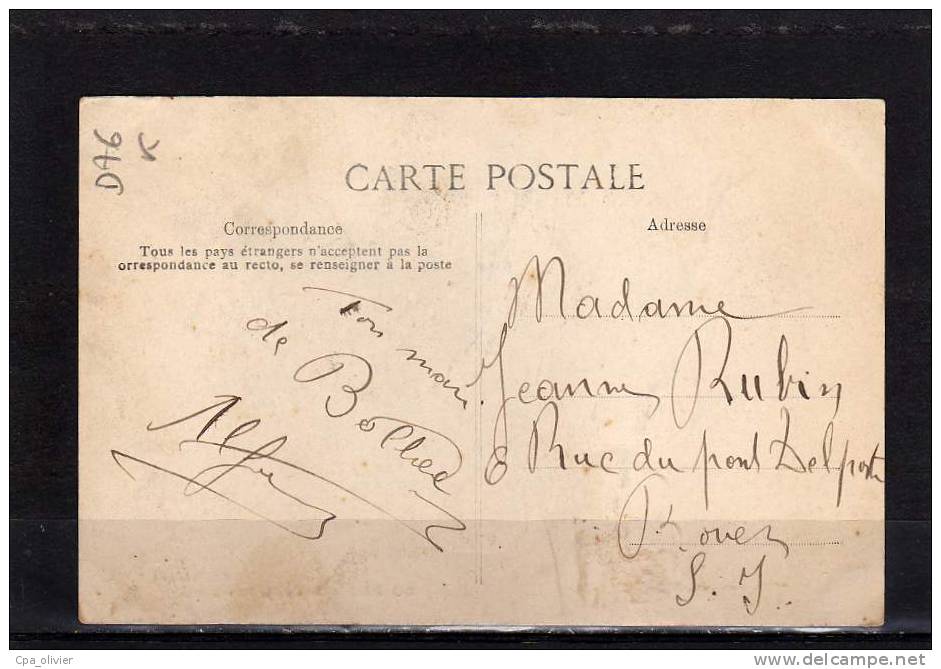 D76
K
CARTE POSTALE
Correspondance
Tous les pays étrangers n'acceptent pas la
orrespondance au recto, se renseigner à la poste
Ton mari
de Bolbec
Adresse
Madame
Jeanne Rubin
6 Rue du pont Delporte
Rouen
S. I.
Cpa_olivier
delcampe.net